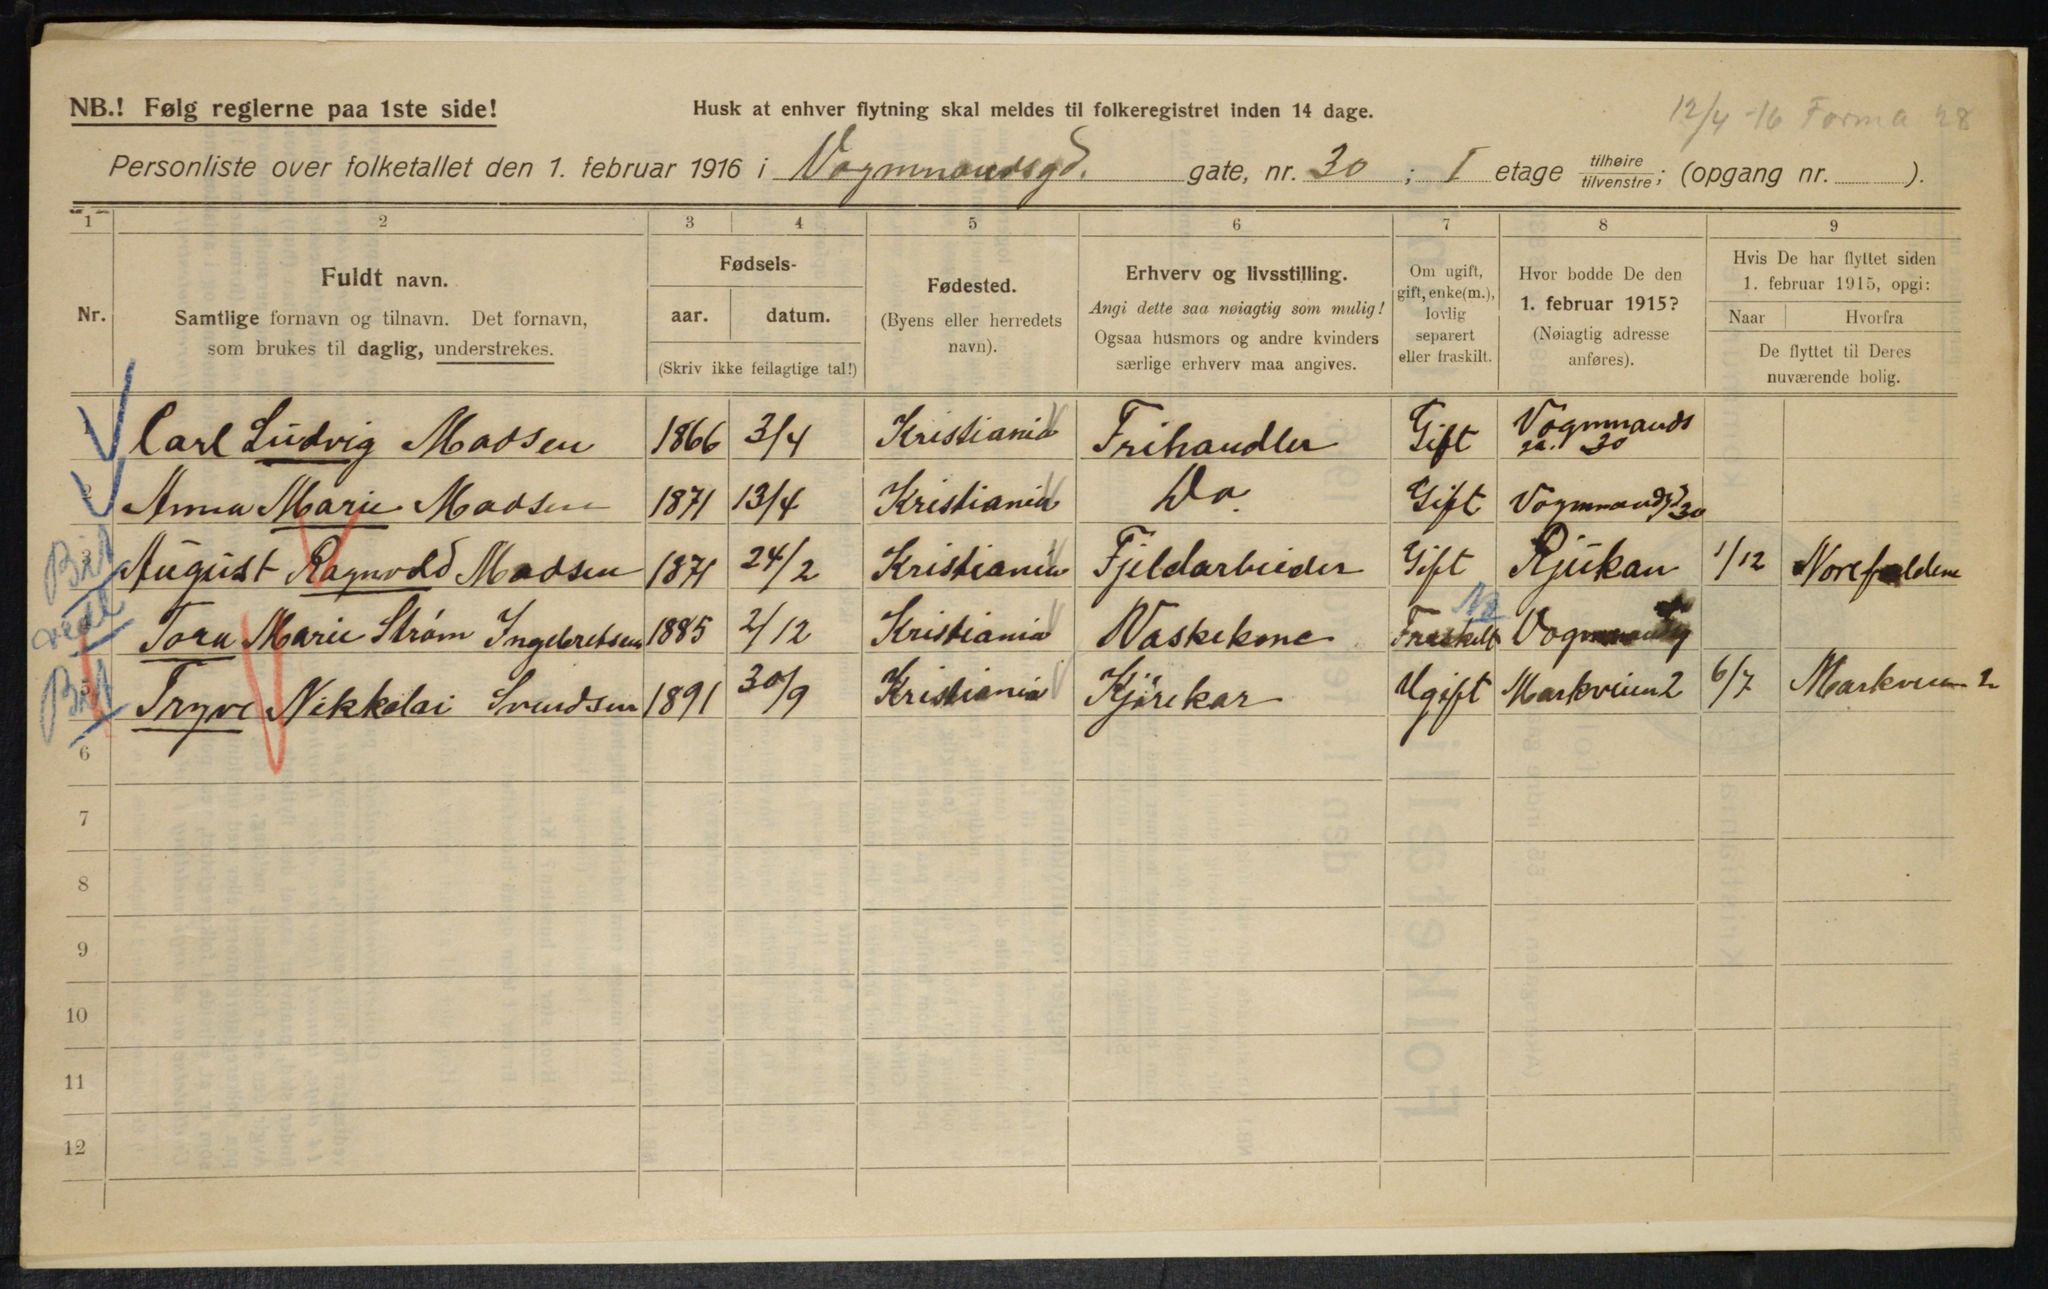 12/4 -16 Forma 28
NB.! Følg reglerne paa 1ste side!
Husk at enhver flytning skal meldes til folkeregistret inden 14 dage.
Personliste over folketallet den 1. februar 1916 i Vognmandsgd. gate, nr. 30 ; I etage tilhøire/tilvenstre; (opgang nr. ).
1 2 3 4 5 6 7 8 9
Nr.
Fuldt navn.
Samtlige fornavn og tilnavn. Det fornavn,
som brukes til daglig, understrekes.
Fødsels-
aar. datum.
(Skriv ikke feilagtige tal!)
Fødested.
(Byens eller herredets
navn).
Erhverv og livsstilling.
Angi dette saa nøiagtig som mulig!
Ogsaa husmors og andre kvinders
særlige erhverv maa angives.
Om ugift,
gift, enke(m.),
lovlig
separert
eller fraskilt.
Hvor bodde De den
1. februar 1915?
(Nøiagtig adresse
anføres).
Hvis De har flyttet siden
1. februar 1915, opgi:
Naar Hvorfra
De flyttet til Deres
nuværende bolig.
Carl Ludvig Madsen 1866 3/4 Kristiania Frihandler Gift Vognmands ga. 30
Anna Marie Madsen 1871 13/4 Kristiania Do. Gift Vognmandsg 30
3 August Ragnvold Madsen 1871 24/2 Kristiania Fjeldarbeider Gift Rjukan 1/12 Norefaldene
Tora Marie Strøm Ingebretsen 1885 2/12 Kristiania Vaskekone Fraskilt Vognmandsg
5 Trygve Nikkolai Svendsen 1891 30/9 Kristiania Kjørekar Ugift Markveien 2 6/7 Markveien 2
6
7
8
9
10
11
12